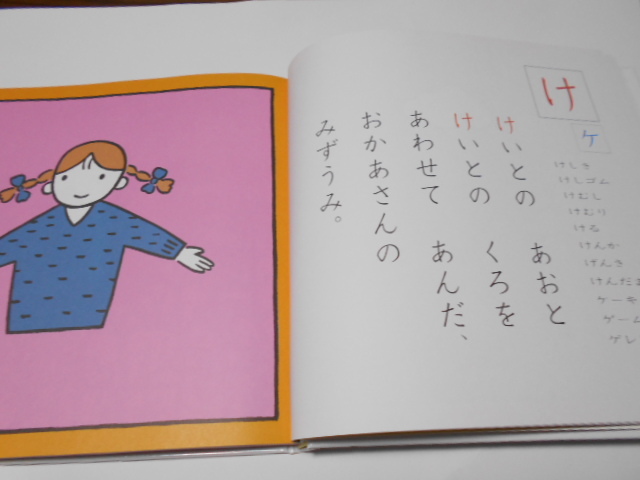 け
ケ
けいとの あおと
けいとの くろを
あわせて あんだ、
おかあさんの
みずうみ。
けしき
けしゴム
けむし
けむり
ける
けんか
けんき
けんだま
ケーキ
ゲーム
ゲレ